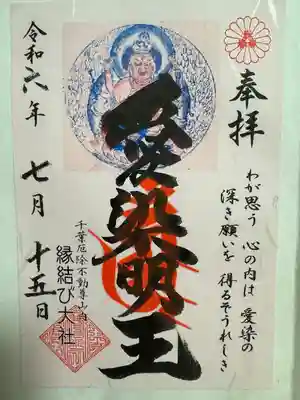 奉拝
わが思う 心の内は 愛染の
深き願いを 得るぞうれしき
愛染明王
千葉厄除不動尊山内
縁結び大社
令和六年 七月 十五日